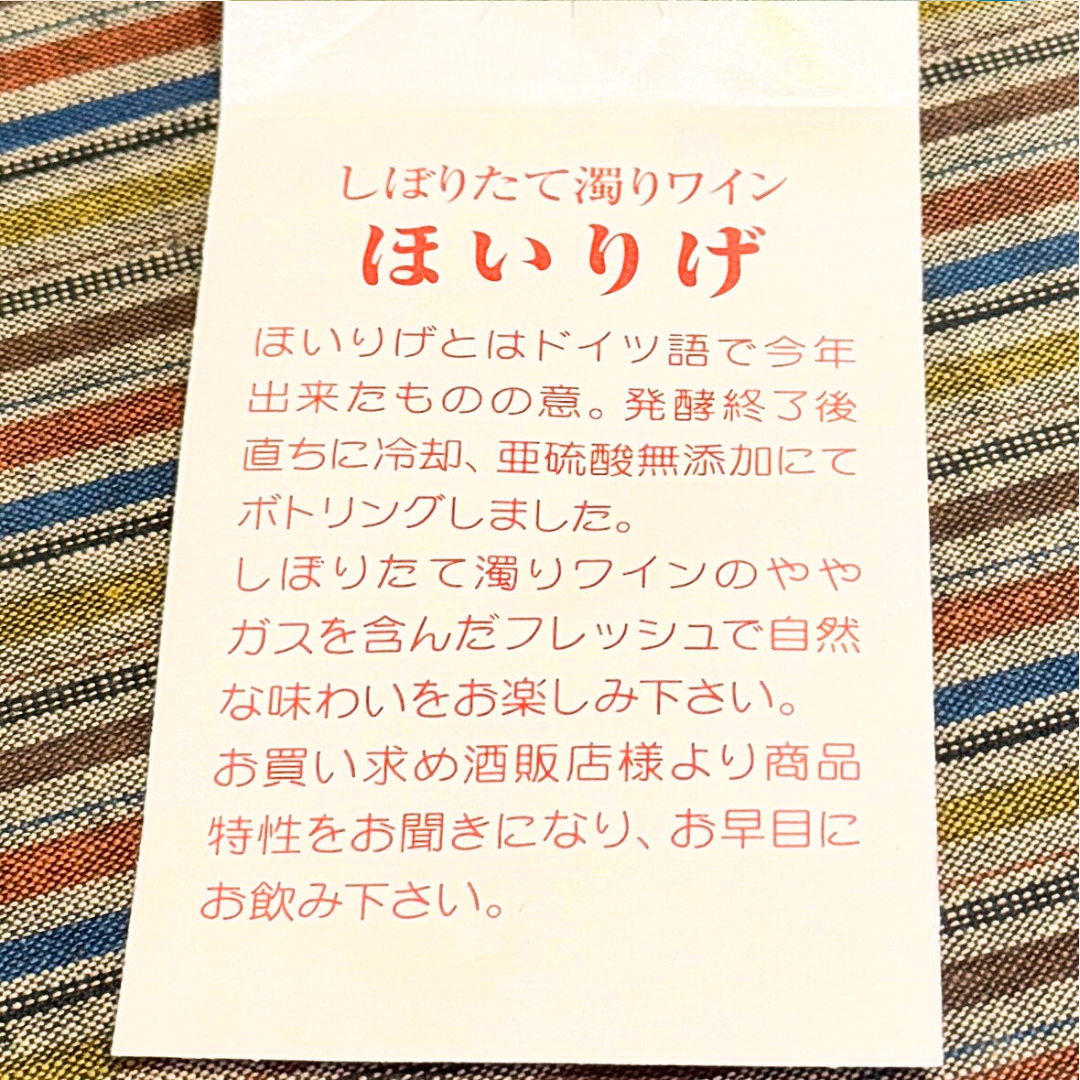 しぼりたて濁りワイン
ほいりげ
ほいりげとはドイツ語で今年
出来たものの意。発酵終了後
直ちに冷却、亜硫酸無添加にて
ボトリングしました。
しぼりたて濁りワインのやや
ガスを含んだフレッシュで自然
な味わいをお楽しみ下さい。
お買い求め酒販店様より商品
特性をお聞きになり、お早目に
お飲み下さい。